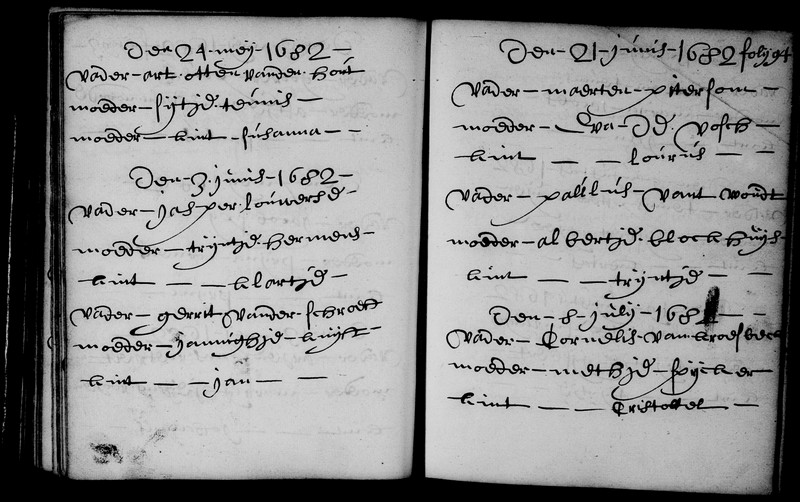 Den 24 meij 1682 —
vader — art otten vander hout
moeder — sijtjd teunis —
moeder — kint — susanna — —
Den 3 junis 1682 —
vader — jasper louwersd —
moeder — trijntjd hermens —
kint — — klartjd —
vader — gerrit vander schroeff
moeder — jannighjd — kuijff —
kint — — — jan — —
Den — 21 — junis — 1682 folij 94
vader — maerten — pittersom —
moeder — Eva — DD vosch —
kint — — — lourus — —
vader — paulus — vant woudt
moeder — albertjd blockhuijs —
kint — — trijntjd — —
Den — 8 — julij — 168 — —
vader — Cornelis van broesbeck
moeder — methjd — spijcker
kint — — — Cristoffel —